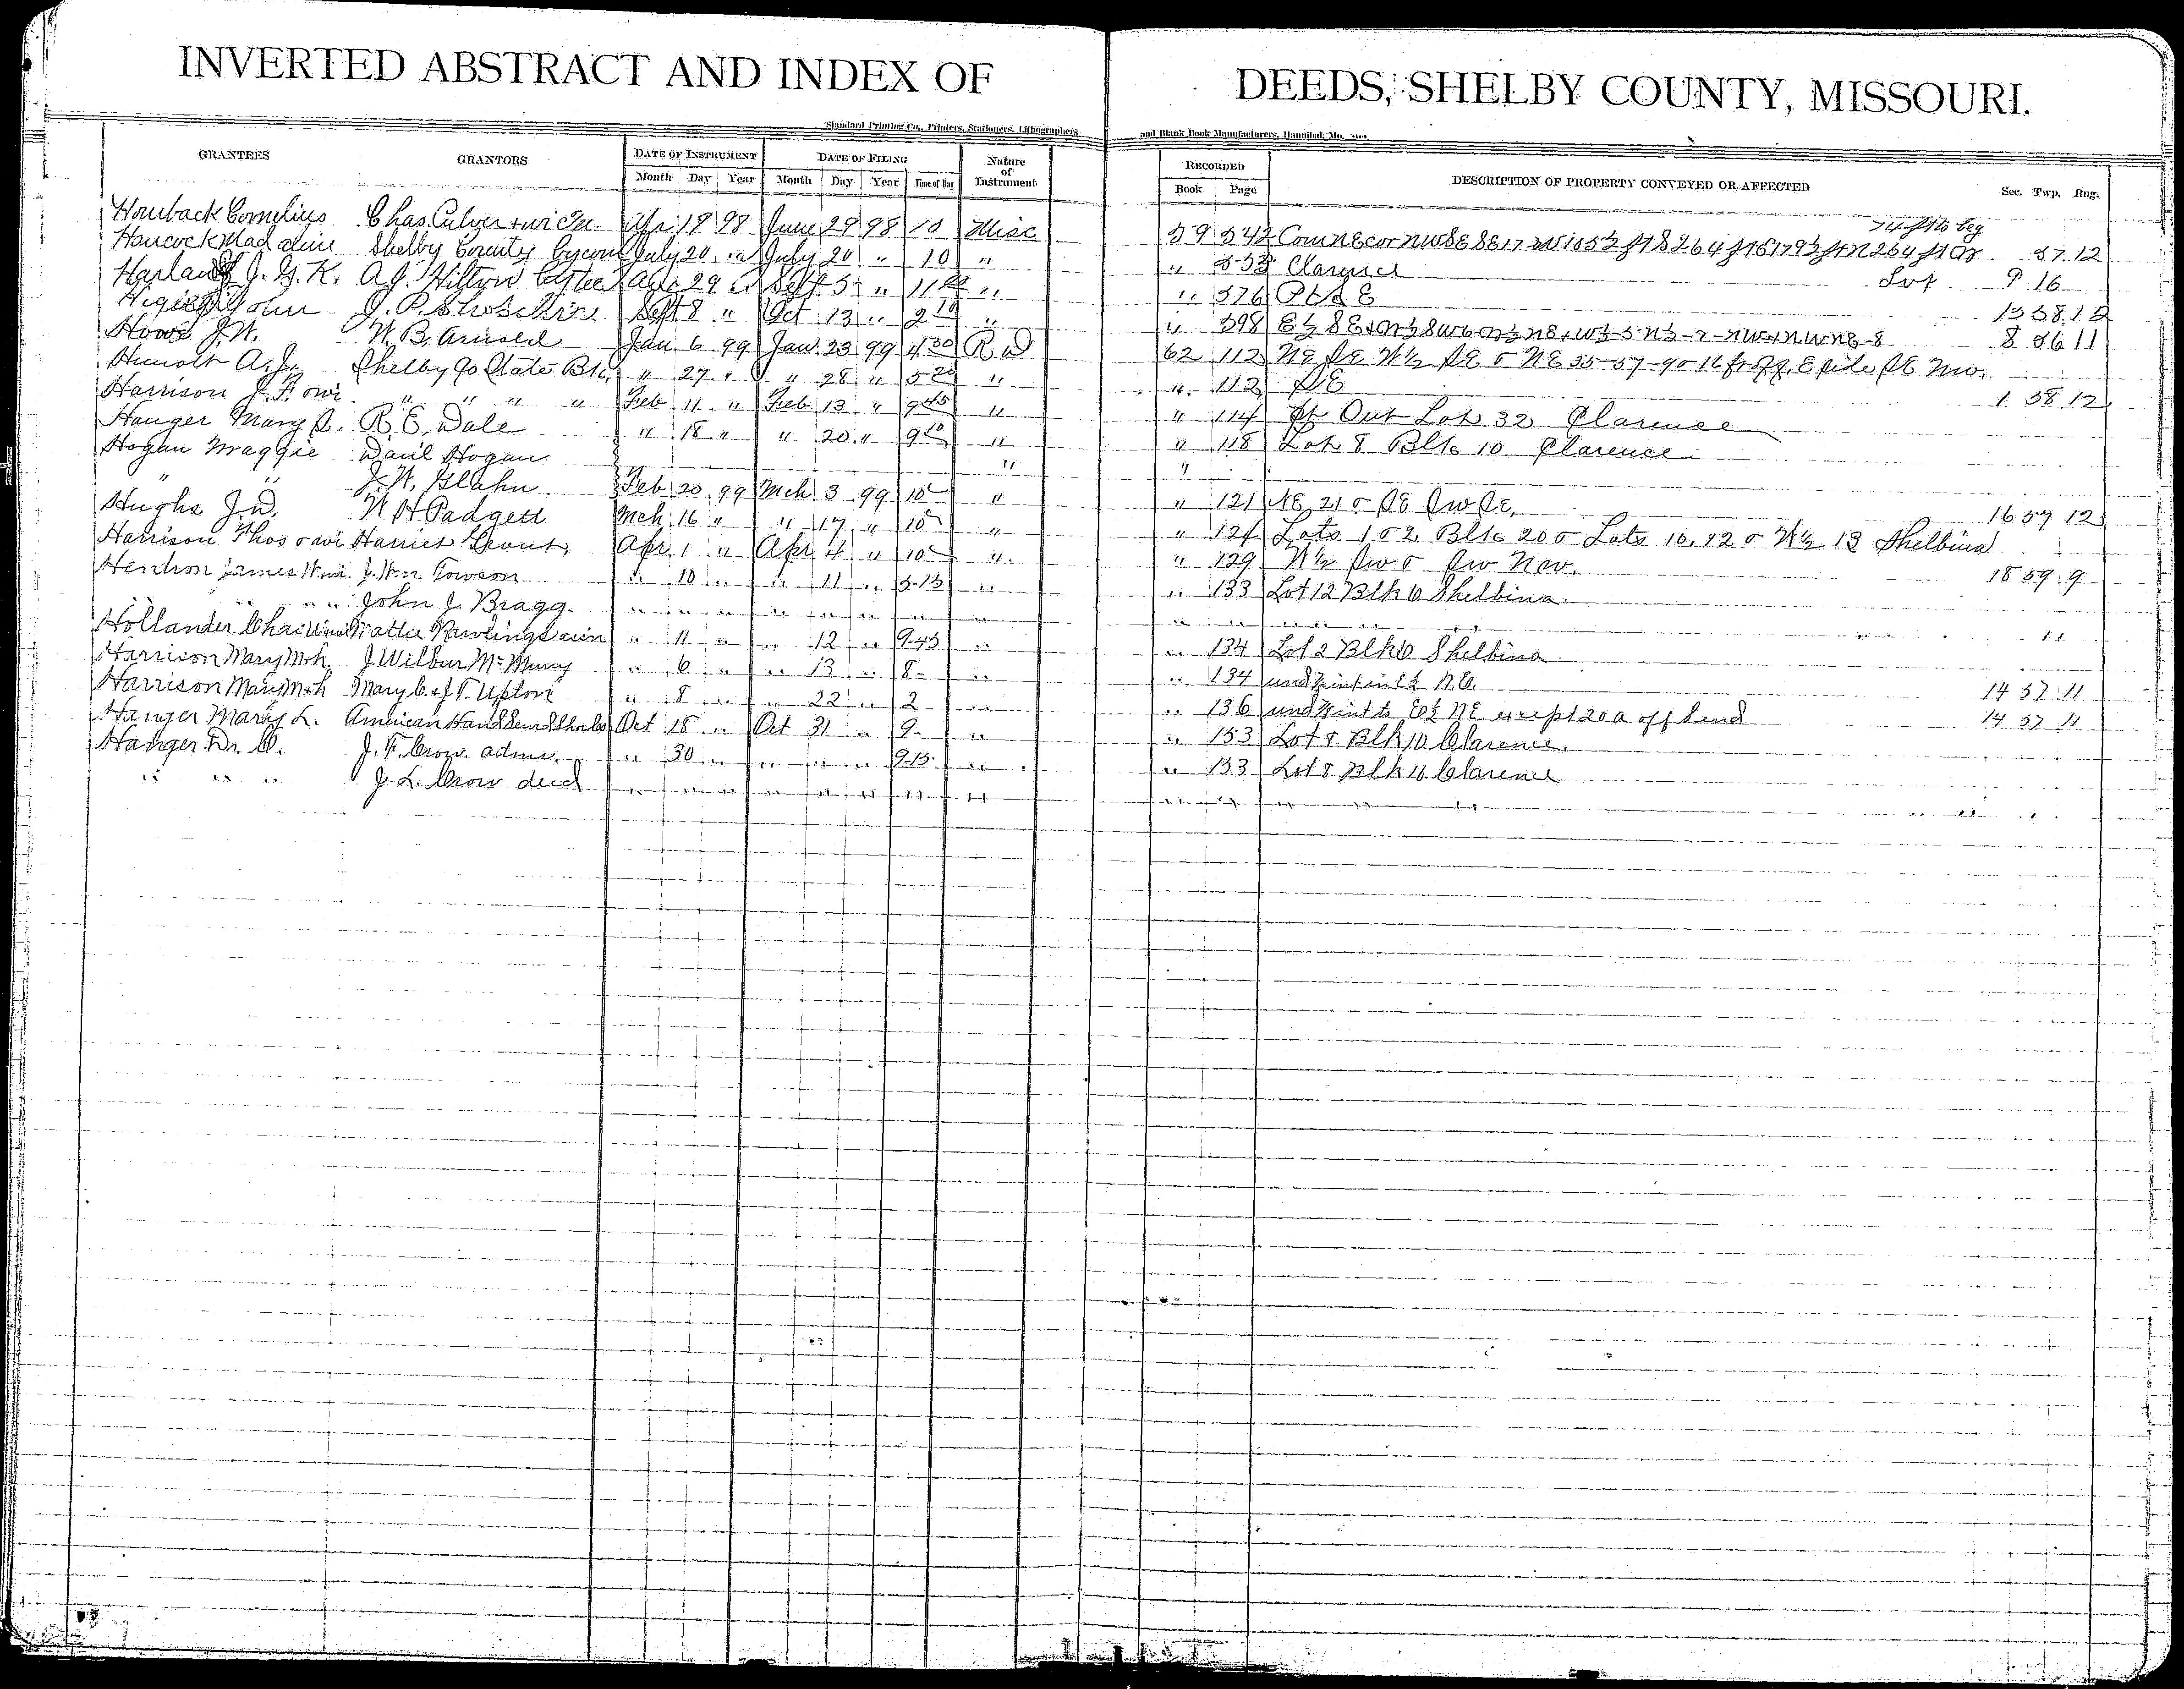 INVERTED ABSTRACT AND INDEX OF DEEDS, SHELBY COUNTY, MISSOURI.
Standard Printing Co., Printers, Stationers, Lithographers and Blank Book Manufacturers, Hannibal, Mo.
GRANTEES GRANTORS DATE OF INSTRUMENT DATE OF FILING Nature of Instrument RECORDED DESCRIPTION OF PROPERTY CONVEYED OR AFFECTED Sec. Twp. Rng.
Month Day Year Month Day Year Time of Day Book Page
74 ft to beg
Hornback Cornelius Chas. Culver + wi 18 98 June 29 98 10 Misc 59 542 Com NE cor NW SE SE 17 264 ft 57 12
Hancock Madaline Shelby County by com July 20 " July 20 " 10 " " 553 Clarence Lot 9 16
Harland J. G. K. A. J. Hilton 29 Sept 5 " 11 " " 576 13 58 12
John J. P. Sept 8 " Oct 13 " 2 " " 598 E½ SE 8 56 11
Howe J. W. W. B. Arnold Jan 6 99 Jan 23 99 4 30 R D 62 112 NE SE W½ SE & NE 35-57-9 & 16 ft off E side SE NW.
A. J. Shelby Co State Bk. " 27 " " 28 " 5 20 " " 112 SE 1 58 12
Harrison J. F. & wi " " " " Feb 11 " Feb 13 " 9 45 " " 114 Pt Out Lot 32 Clarence
Hanger Mary L. R. E. Dale " 18 " " 20 " 9 10 " " 118 Lot 8 Blk 10 Clarence
Hogan Maggie Dan'l Hogan " "
" " J. W. Glahn Feb 20 99 Mch 3 99 10 " " 121 NE 21 & SE SW SE. 16 57 12
Hughs J. D. W H Padgett Mch 16 " " 17 " 10 " " 124 Lots 1 & 2 Blk 20 & Lots 10, 12 & W½ 13 Shelbina
Harrison Thos & wi Harriet Grout Apr 1 " Apr 4 " 10 " " 129 W½ SW & SW NW. 18 59 9
James W. J. Wm. Towson " 10 " " 11 " 3-15 " " 133 Lot 12 Blk 10 Shelbina
" " " John J. Bragg. " " " " " " " " " " " "
Hollander Chas Hattie Rawlings " 11 " " 12 " 9-45 " " 134 Lot 2 Blk 10 Shelbina
Harrison Mary M. h. J Wilbur McMurry " 6 " " 13 " 8- " " 134 und ½ int in E½ N.E. 14 57 11
Harrison Mary M. h Mary C. & J. T. Upton " 8 " " 22 " 2 " " 136 und ½ int to E½ NE except 20 a off S end 14 57 11
Hanger Mary L. American Hand Sewed Shoe Co Oct 18 " Oct 31 " 9- " " 153 Lot 8 Blk 10 Clarence.
Hanger Dr. D. J. F. Crow admr. " 30 " " " " 9-15 " " 153 Lot 8 Blk 10 Clarence
" " " J. L. Crow decd " " " " " " " " " " "